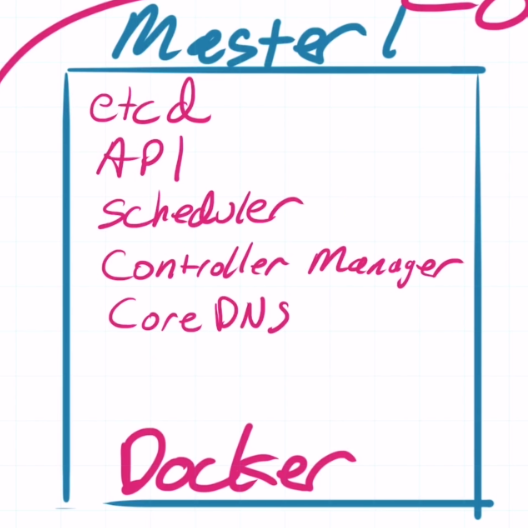 Master 1
etcd
API
Scheduler
Controller Manager
Core DNS
Docker